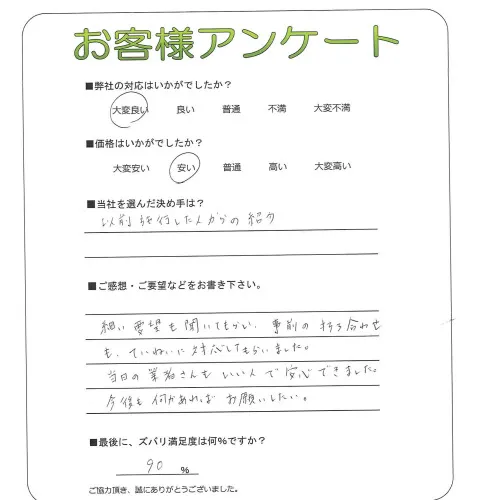 お客様アンケート
■弊社の対応はいかがでしたか？
大変良い 良い 普通 不満 大変不満
■価格はいかがでしたか？
大変安い 安い 普通 高い 大変高い
■当社を選んだ決め手は？
以前 施行した人からの紹介
■ご感想・ご要望などをお書き下さい。
細い要望も聞いてもらい、事前の打ち合わせ
も、ていねいに対応してもらいました。
当日の業者さんも いい人で安心できました。
今後も何かあれば お願いしたい。
■最後に、ズバリ満足度は何％ですか？
90 ％
ご協力頂き、誠にありがとうございました。